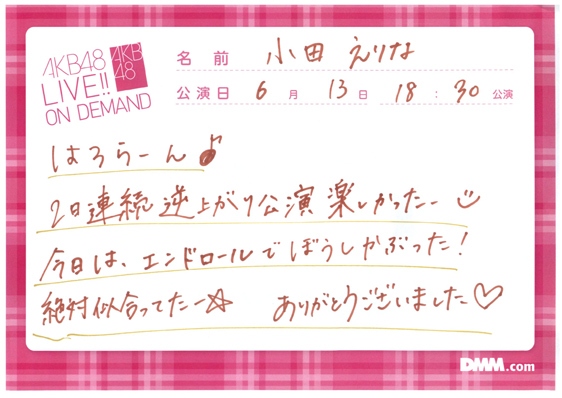 AKB48
LIVE!!
ON DEMAND
AKB
48
名前 小田えりな
公演日 6月 13日 18:30 公演
はろらーん♪
2日連続 逆上がり公演 楽しかったー
今日は、エンドロールでぼうしかぶった!
絶対似合ってたー☆ ありがとうございました♡
DMM.com